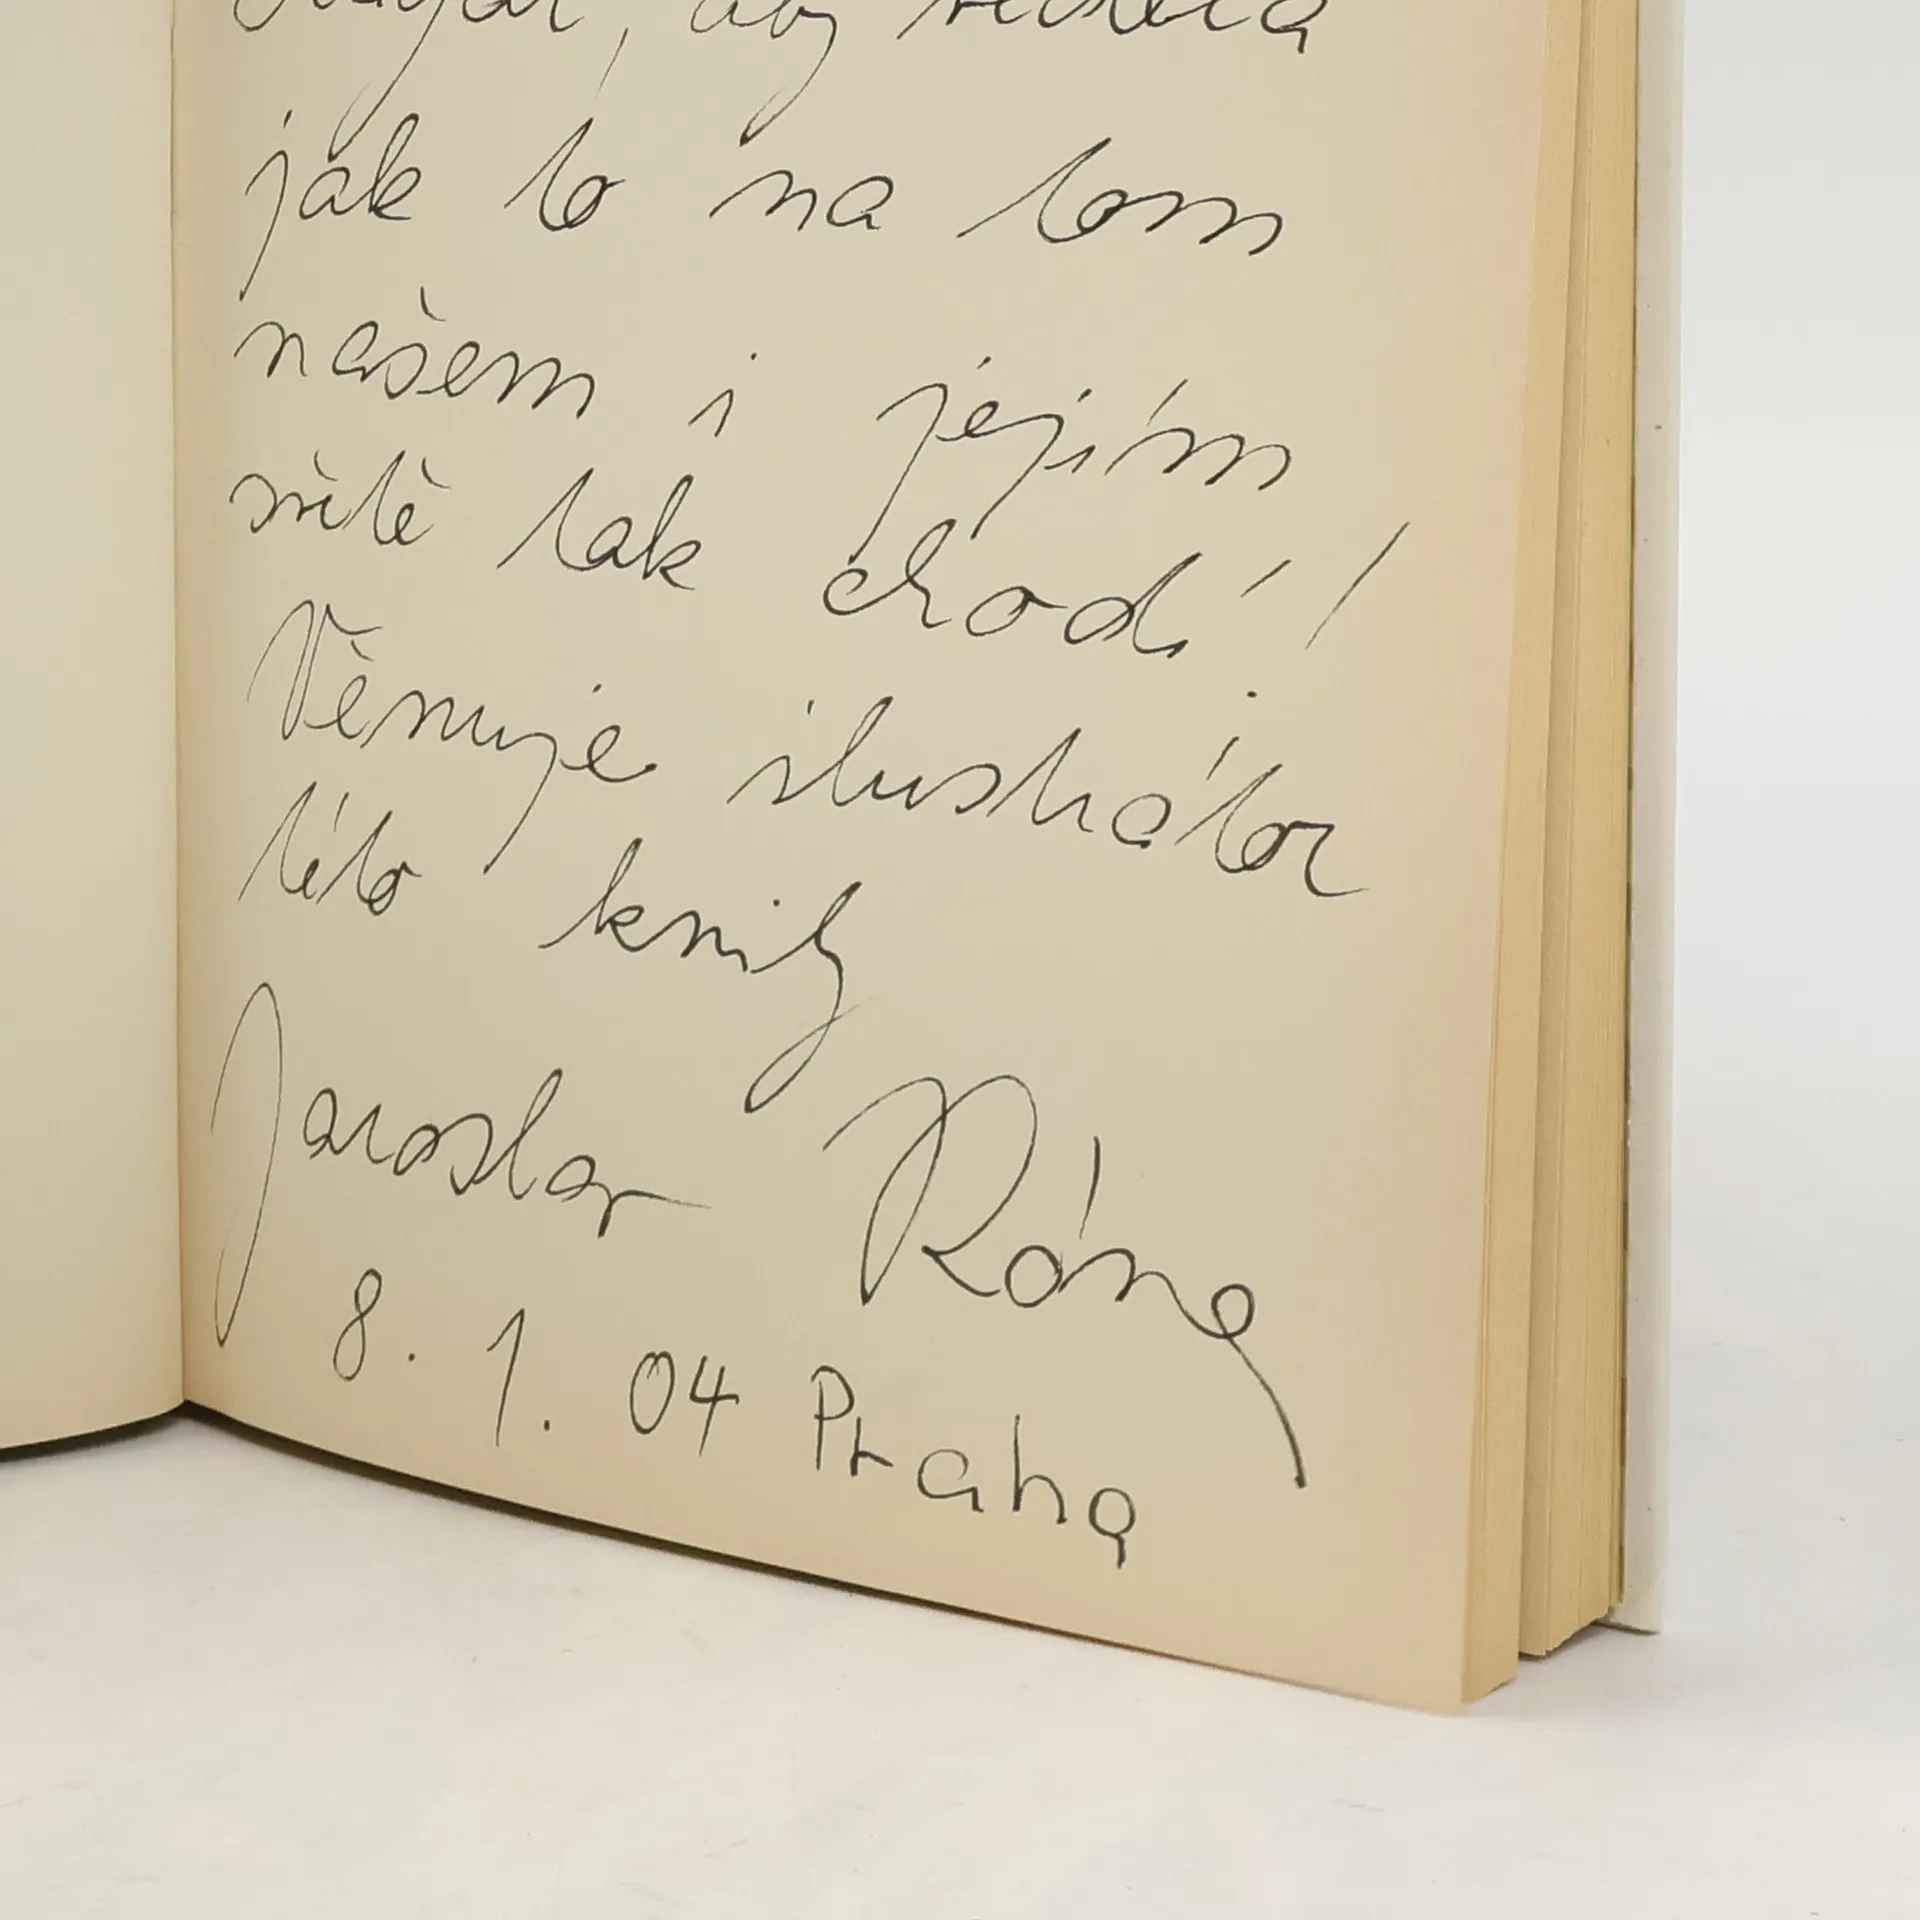 aby věděla
jak to na tom
našem i jejím
světě tak chodí!
Věnuje ilustrátor
této knihy
Jaroslav Róna
8. 1. 04 Praha